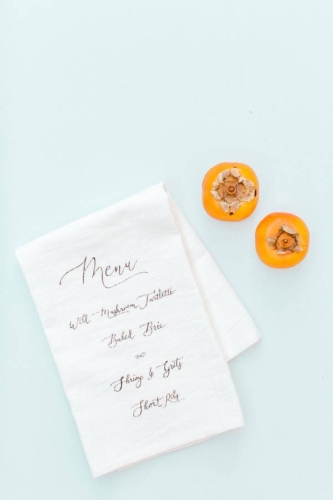 Menu
Wild Mushroom Tartlette
Baked Brie
and
Shrimp & Grits
Short Rib